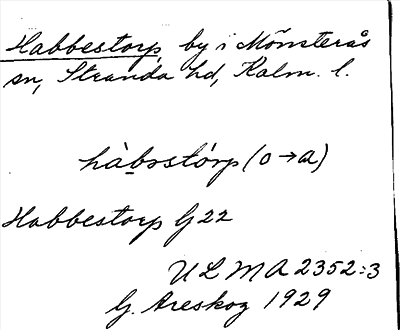 Habbestorp, by i Mönsterås
sn, Stranda hd, Kalm. l.
hàbostórp (o→a)
Habbestorp G 22
ULMA 2352:3
G. Areskog 1929